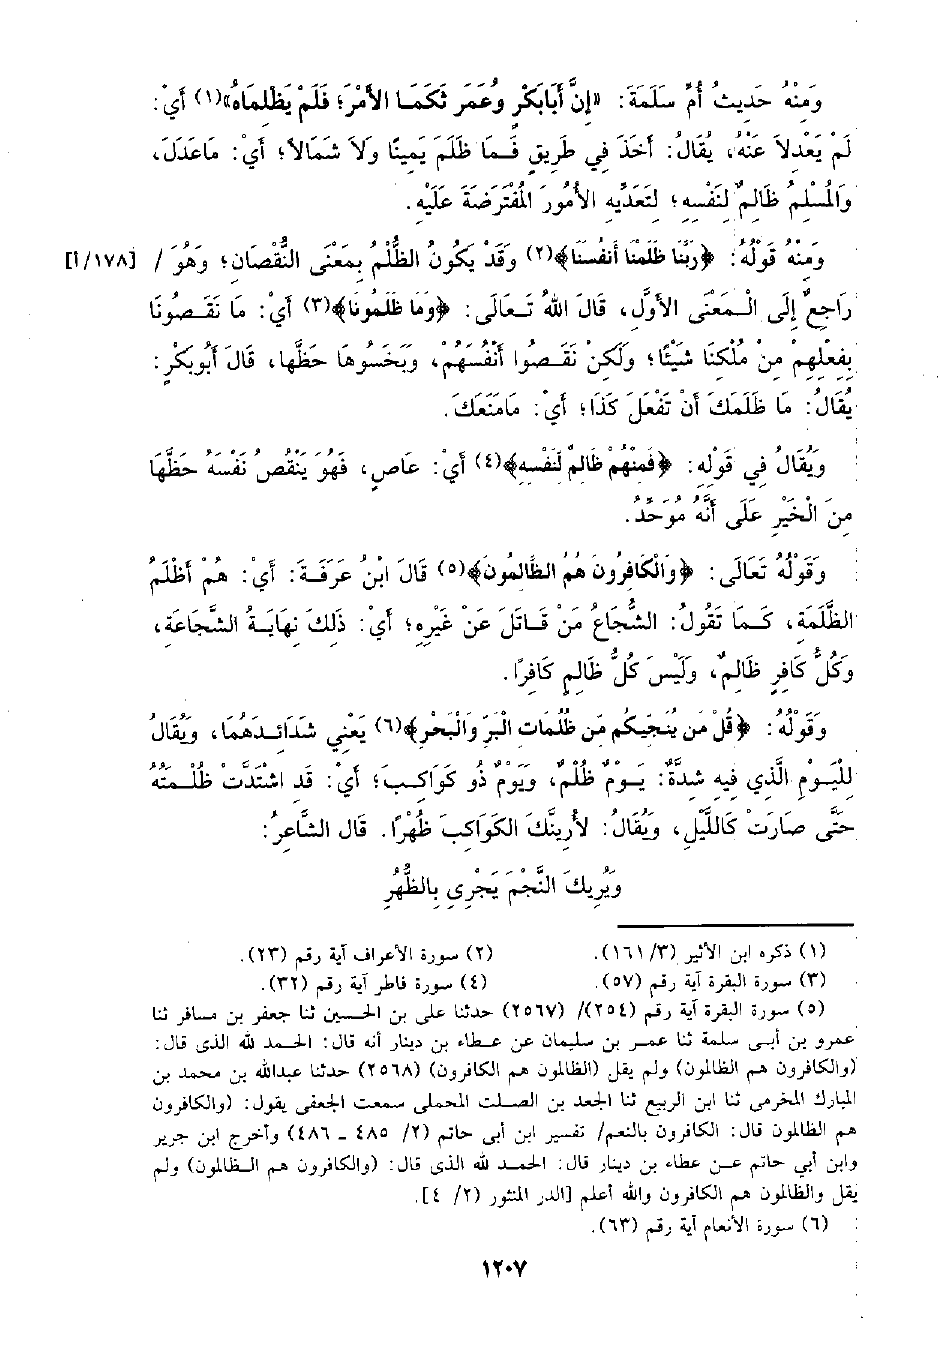 وَمِنْهُ حَدِيثُ أُمِّ سَلَمَةَ: «إنَّ أَبَابَكْرٍ وعُمَرَ ثَكَمَا الأَمْرَ؛ فَلَمْ يَظْلِمَاهُ»(١) أَيْ:
لَمْ يَعْدِلاَ عَنْهُ، يُقَالُ: أَخَذَ فِي طَرِيقٍ فَمَا ظَلَمَ يَمِينًا وَلاَ شَمَالاً؛ أَيْ: مَاعَدَلَ،
وَالمُسْلِمُ ظَالِمٌ لِنَفْسِهِ؛ لتَعَدِّيهِ الأُمُورَ المُفْتَرَضَةَ عَلَيْهِ.
وَمِنْهُ قَوْلُهُ: ﴿رَبَّنَا ظَلَمْنَا أَنفُسَنَا﴾(٢) وَقَدْ يَكُونُ الظُّلْمُ بِمَعْنَى النُّقْصَانِ؛ وَهُوَ / [١٧٨/أ]
رَاجِعٌ إِلَى الْمَعْنَى الأوَّلِ، قَالَ اللهُ تَعَالَى: ﴿وَمَا ظَلَمُونَا﴾(٣) أَيْ: مَا نَقَصُونَا
بِفِعْلِهِمْ مِنْ مُلْكِنَا شَيْئًا؛ وَلَكِنْ نَقَصُوا أَنْفُسَهُمْ، وَبَخَسُوهَا حَظَّهَا، قَالَ أَبُوبَكْرٍ:
يُقَالُ: مَا ظَلَمَكَ أَنْ تَفْعَلَ كَذَا؛ أَيْ: مَامَنَعَكَ.
وَيُقَالُ فِي قَوْلِهِ: ﴿فَمِنْهُمْ ظَالِمٌ لِّنَفْسِهِ﴾(٤) أَيْ: عَاصٍ، فَهُوَ يَنْقُصُ نَفْسَهُ حَظَّهَا
مِنَ الْخَيْرِ عَلَى أَنَّهُ مُوَحِّدٌ.
وَقَوْلُهُ تَعَالَى: ﴿وَالْكَافِرُونَ هُمُ الظَّالِمُونَ﴾(٥) قَالَ ابْنُ عَرَفَةَ: أَيْ: هُمْ أَظْلَمُ
الظَّلَمَةِ، كَمَا تَقُولُ: الشُّجَاعُ مَنْ قَاتَلَ عَنْ غَيْرِهِ؛ أَيْ: ذَلِكَ نِهَايَةُ الشَّجَاعَةِ،
وَكُلُّ كَافِرٍ ظَالِمٌ، وَلَيْسَ كُلُّ ظَالِمٍ كَافِرًا.
وَقَوْلُهُ: ﴿قُلْ مَن يُنَجِّيكُم مِّن ظُلُمَاتِ الْبَرِّ وَالْبَحْرِ﴾(٦) يَعْنِي شَدَائِدَهُمَا، وَيُقَالُ
لِلْيَوْمِ الَّذِي فِيهِ شِدَّةٌ: يَوْمٌ ظُلْمٌ، وَيَوْمٌ ذُو كَوَاكِبَ؛ أَيْ: قَد اشْتَدَّتْ ظُلْمَتُهُ
حَتَّى صَارَتْ كَاللَّيْلِ، وَيُقَالُ: لأُرِيَنَّكَ الكَوَاكِبَ ظُهْرًا. قَال الشَّاعِرُ:
وَيُرِيكَ النَّجْمَ يَجْرِي بِالظُّهُرِ
(١) ذكره ابن الأثير (٣/ ١٦١). (٢) سورة الأعراف آية رقم (٢٣).
(٣) سورة البقرة آية رقم (٥٧). (٤) سورة فاطر آية رقم (٣٢).
(٥) سورة البقرة آية رقم (٢٥٤)/ (٢٥٦٧) حدثنا على بن الحسين ثنا جعفر بن مسافر ثنا
عمرو بن أبى سلمة ثنا عمر بن سليمان عن عطاء بن دينار أنه قال: الحمد لله الذى قال:
(والكافرون هم الظالمون) ولم يقل (الظالمون هم الكافرون) (٢٥٦٨) حدثنا عبدالله بن محمد بن
المبارك المخرمى ثنا ابن الربيع ثنا الجعد بن الصلت المحملى سمعت الجعفى يقول: (والكافرون
هم الظالمون قال: الكافرون بالنعم/ تفسير ابن أبى حاتم (٢/ ٤٨٥ ـ ٤٨٦) وأخرج ابن جرير
وابن أبي حاتم عن عطاء بن دينار قال: الحمد لله الذى قال: (والكافرون هم الظالمون) ولم
يقل والظالمون هم الكافرون والله أعلم [الدر المنثور (٢/ ٤].
(٦) سورة الأنعام آية رقم (٦٣).
١٢٠٧